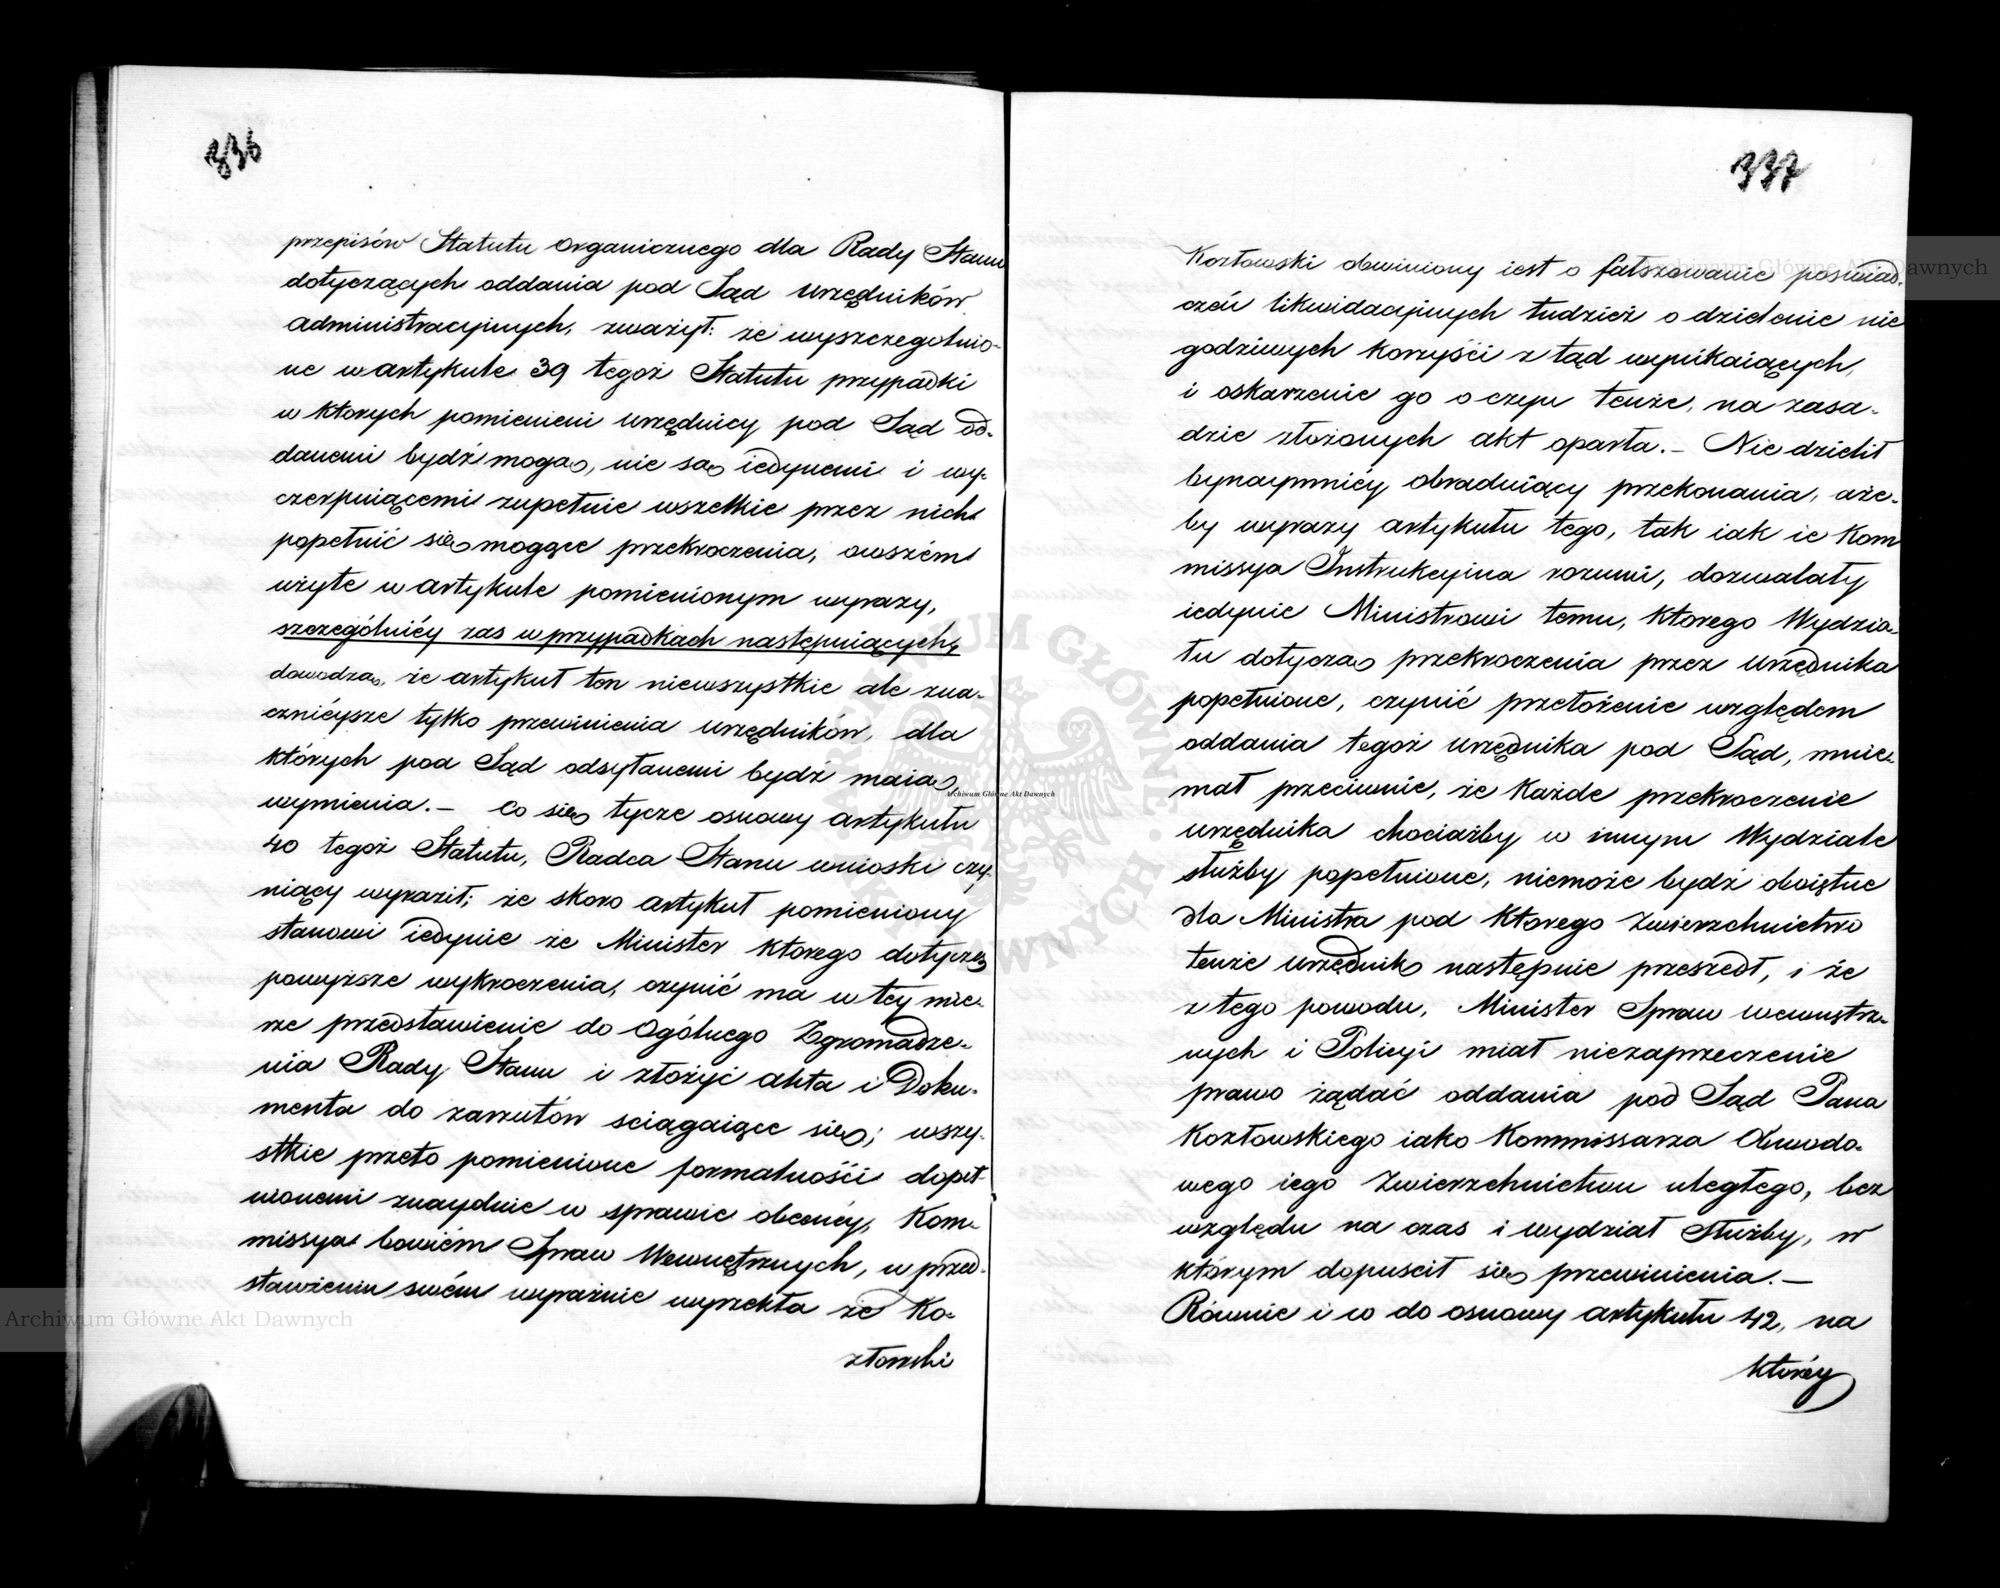 336
przepisów Statutu Organicznego dla Rady Stanu
dotyczących oddania pod Sąd Urzędników
Administracyjnych, zważył: że wyszczególnio-
ne w artykule 39 tegoż Statutu przypadki
w ktorych pomienieni urzędnicy pod Sąd od-
danemi bydź mogą, nie są iedynemi i wy-
czerpuiącemi zupełnie wszelkie przez nich
popełnić się mogące przekroczenia, owszém
użyte w artykule pomienionym wyrazy,
szczególniéy zas w przypadkach następuiących,
dowodzą, że artykuł ten niewszystkie ale zna-
cznieysze tylko przewinienia urzędników, dla
których pod Sąd odsyłanemi bydź maią,
wymienia. — Co się tycze osnowy artykułu
40 tegoż Statutu, Radca Stanu wnioski czy-
niący wyraził; że skoro artykuł pomieniony
stanowi iedynie że Minister ktorego dotyczą
powyższe wykroczenia, czynić ma w tey mie-
rze przedstawienie do Ogólnego Zgromadze-
nia Rady Stanu i złożyć akta i Doku-
menta do zarzutów sciągaiące się; wszy-
stkie przeto pomienione formalności dopeł-
nionemi znayduie w sprawie obecnéy, Kom-
missya bowiém Spraw Wewnętrznych, w przed-
stawieniu swém wyraźnie wyrzekła że Ko-
złowski
337
Kozłowski obwiniony iest o fałszowanie poswiad-
czeń likwidacyjnych tudzież o dzielenie nie
godziwych korzyści z tąd wynikaiących,
i oskarzenie go o czyn tenże, na zasa-
dzie złożonych akt oparła. — Nie dzielił
bynaymniéy obraduiący przekonania, aże-
by wyrazy artykułu tego, tak iak ie Kom
missya Instrukcyina rozumi, dozwalały
iedynie Ministrowi temu, ktorego Wydzia-
łu dotyczą przekroczenia przez Urzędnika
popełnione, czynić przełożenie względem
oddania tegoż Urzędnika pod Sąd, mnie-
mał przeciwnie, że każde przekroczenie
urzędnika chociażby w innym Wydziale
służby popełnione, niemoże bydź oboiętne
dla Ministra pod ktorego Zwierzchnictwo
tenże Urzędnik następnie przeszedł, i że
z tego powodu, Minister Spraw Wewnętrz-
nych i Policyi miał niezaprzeczenie
prawo żądać oddania pod Sąd Pana
Kozłowskiego iako Kommissarza Obwodo-
wego iego Zwierzchnictwu uległego, bez
względu na czas i wydział Służby, w
którym dopuscił się przewinienia. —
Równie i co do osnowy artykułu 42, na
któréy
Archiwum Główne Akt Dawnych
Archiwum Główne Akt Dawnych
Archiwum Główne Akt Dawnych
ARCHIWUM GŁÓWNE AKT DAWNYCH